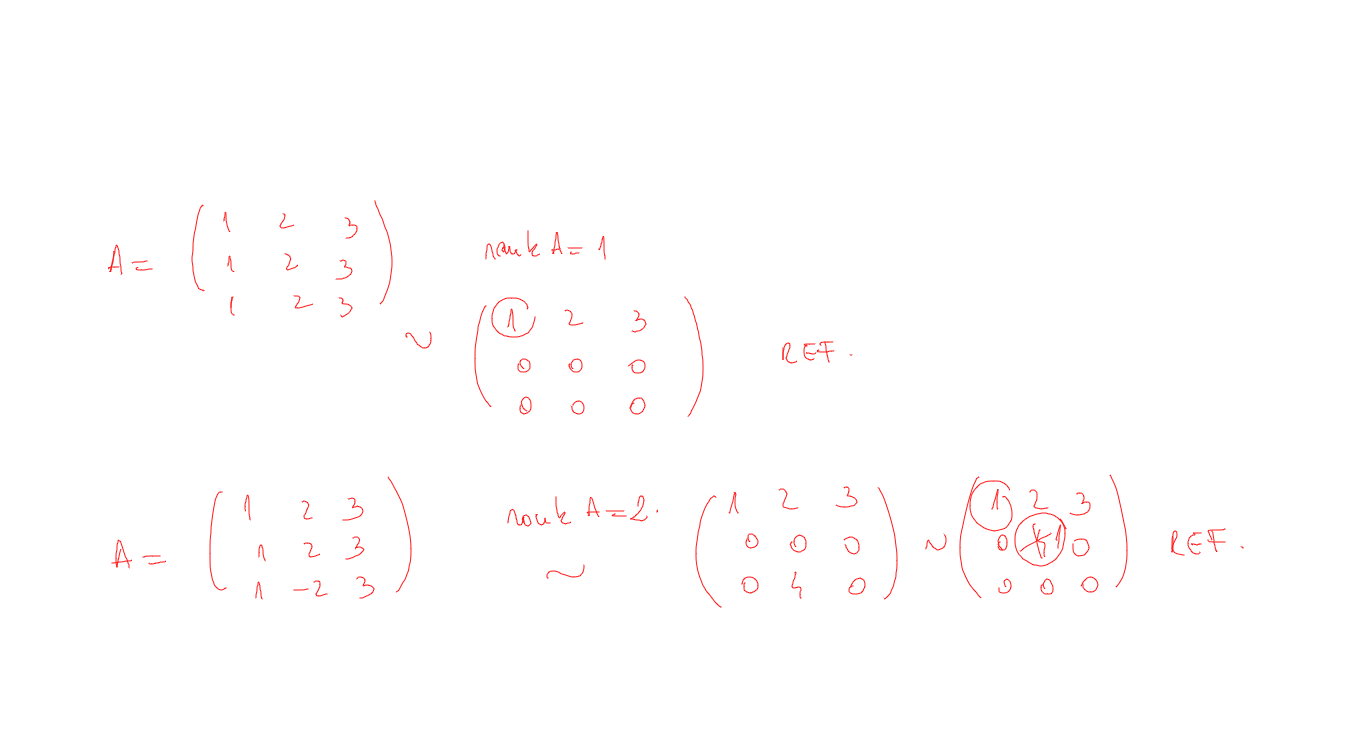 A = ( 1 2 3
1 2 3
1 2 3 )
rank A = 1
~ ( 1 2 3
0 0 0
0 0 0 )
REF.
A = ( 1 2 3
1 2 3
1 -2 3 )
rank A = 2.
~
( 1 2 3
0 0 0
0 4 0 )
~ ( 1 2 3
0 1 0
0 0 0 )
REF.